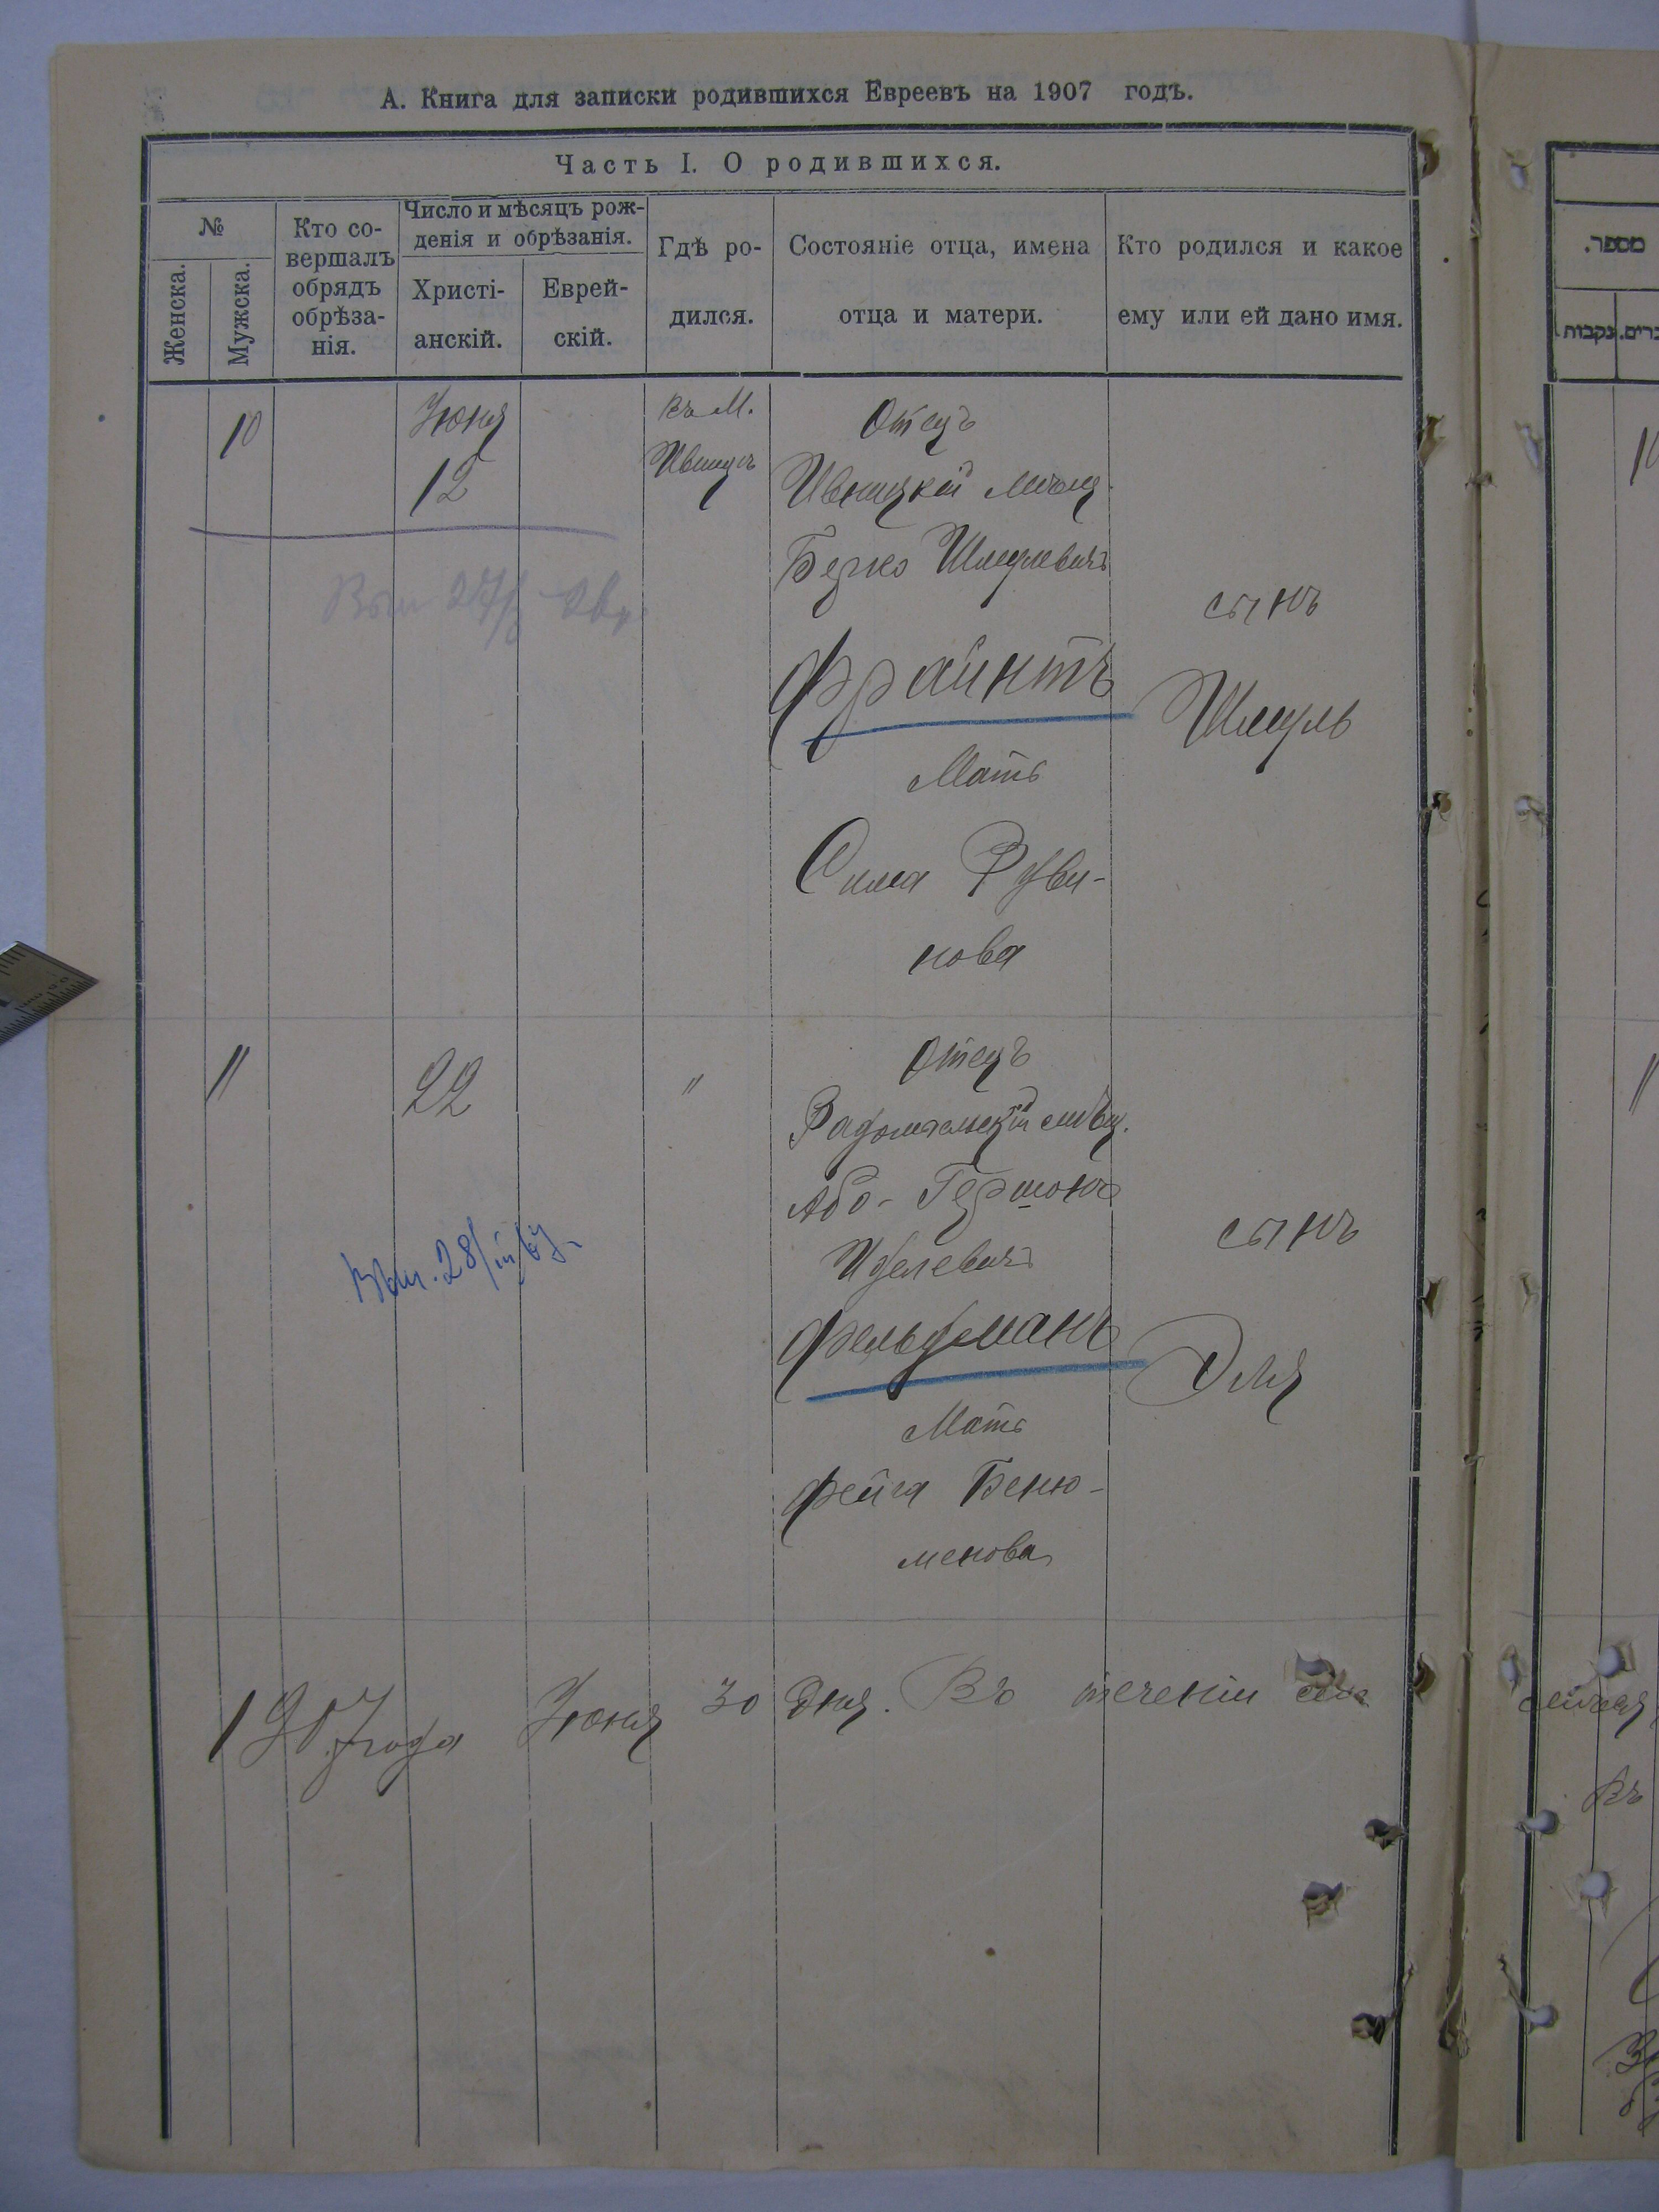 А. Книга для записки родившихся Евреевъ на 1907 годъ.
Часть I. О родившихся.
№
Женска.
Мужска.
Кто со-
вершалъ
обрядъ
обрѣза-
нія.
Число и мѣсяцъ рож-
денія и обрѣзанія.
Христі-
анскій.
Еврей-
скій.
Гдѣ ро-
дился.
Состояніе отца, имена
отца и матери.
Кто родился и какое
ему или ей дано имя.
10
Іюня
12
въ М.
Ивницѣ
Отецъ
Ивницкій мѣщ.
Берко Шмулевичъ
Фраинтъ
Мать
Сима Руви-
нова
сынъ
Шмуль
11
22
"
Отецъ
Радомысльскій мѣщ.
Або-Гершонъ
Иделевичъ
Фельдманъ
Мать
Фейга Беню-
менова
сынъ
Эля
1907 года Іюня 30 дня. Въ теченіи сего
מספר.
נקבות
10
11
Въ